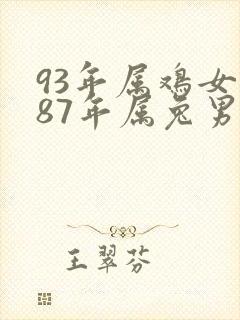 93年属鸡女
87年属兔男
王翠芬